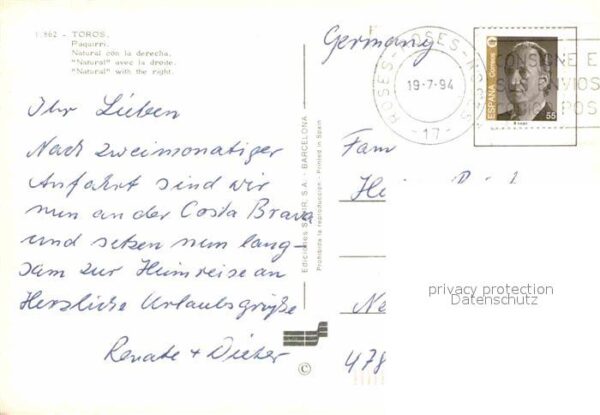 1 862 - TOROS.
Paquirri.
Natural con la derecha.
"Natural" avec la droite.
"Natural" with the right.
Ihr Lieben
Nach zweimonatiger
Anfahrt sind wir
nun an der Costa Brava
und setzen nun lang-
sam zur Heimreise an
Herzliche Urlaubsgrüße
Renate + Dieter
BARCELONA
Prohibida la reproducción - Printed in Spain
©
Germany
ROSES - ROSES
19-7-94
-17-
ESPAÑA Correos
55
CONSIGNE E
ENVIOS
POS
Fam
He
Ne
478
privacy protection
Datenschutz